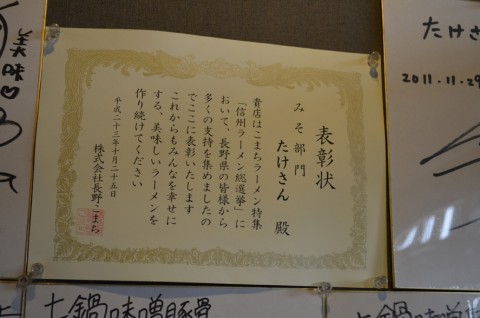 表彰状
みそ部門
たけさん 殿
貴店はこまちラーメン特集
「信州ラーメン総選挙」に
おいて、長野県の皆様から
多くの支持を集めましたの
でここに表彰いたします
これからもみんなを幸せに
する、美味しいラーメンを
作り続けてください
平成二十三年十月二十五日
株式会社長野こまち
美味
たけさ
2011.11.29
土鍋味噌豚骨